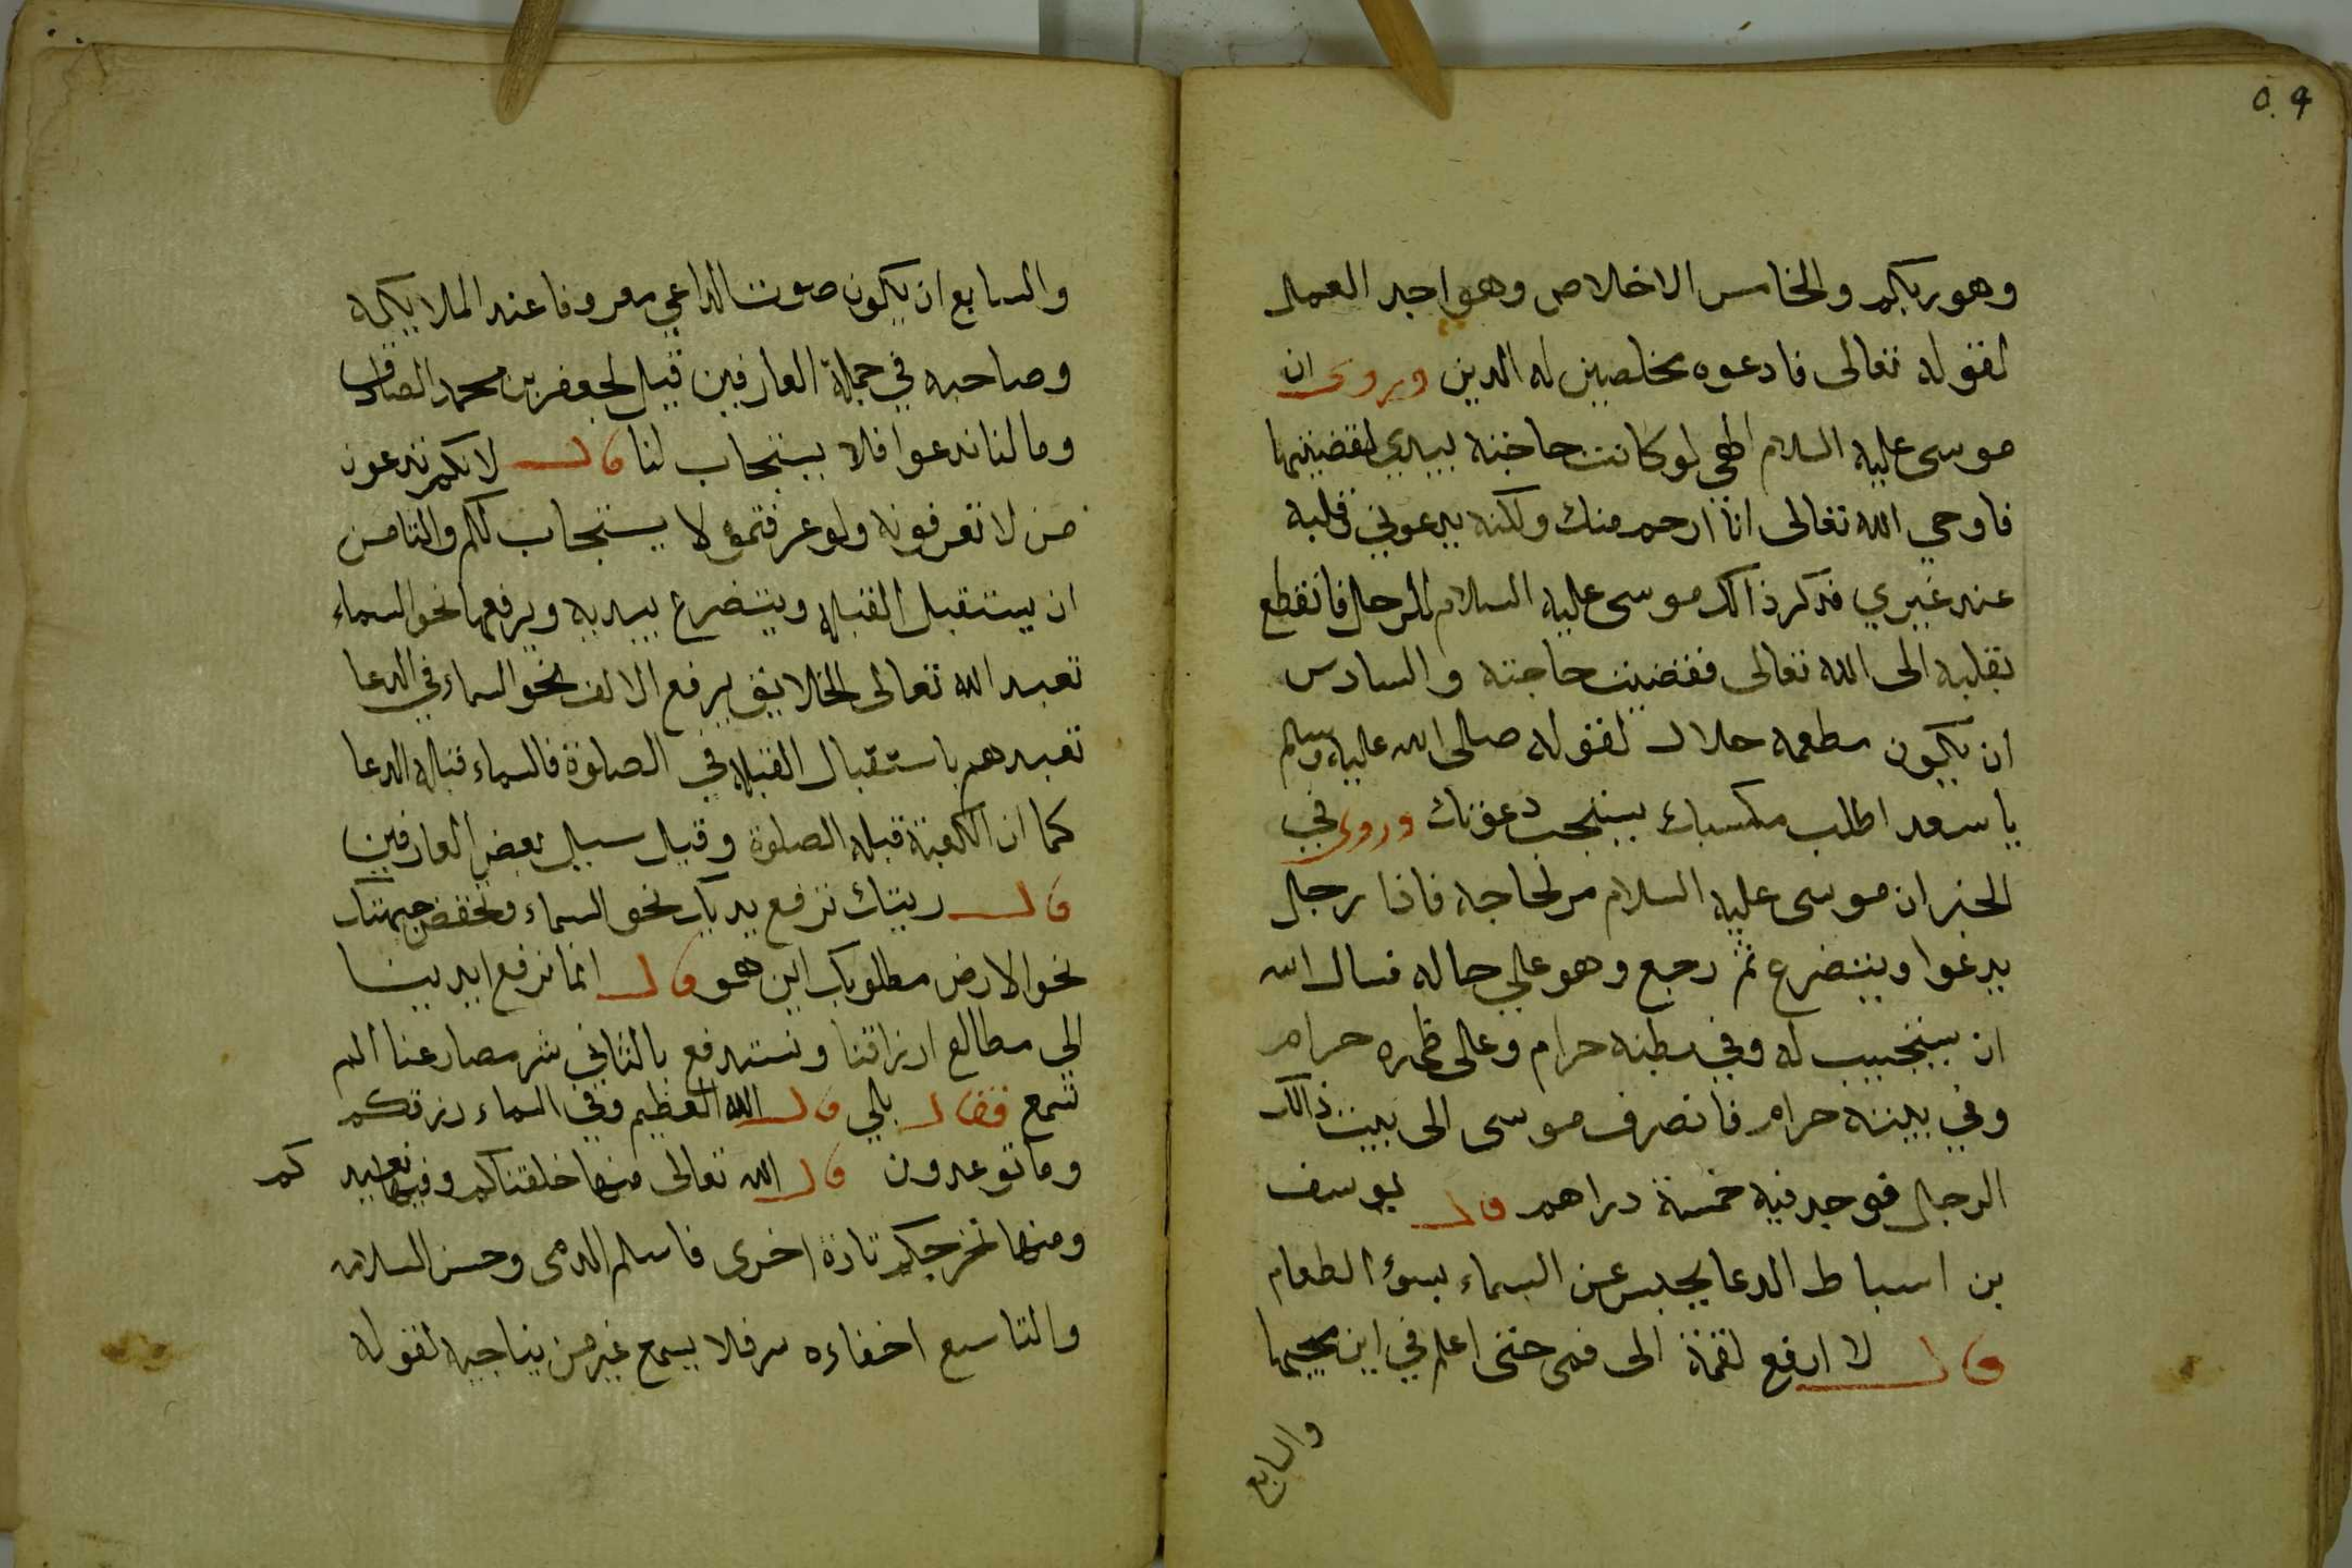 ٥٠٩
وهو ربكم والخامس الاخلاص وهو اجد العمل
لقوله تعالى فادعوه مخلصين له الدين ويروى ان
موسى عليه السلام الهي لو كانت حاجته بيدي لقضيتها
فاوحي الله تعالى انا ارحم منك ولكنه يدعوني قلبه
عند غيري فذكر ذالك موسى عليه السلام للرجل فانقطع
بقلبه الى الله تعالى فقضيت حاجته والسادس
ان يكون مطعمه حلال لقوله صلى الله عليه وسلم
يا سعد اطلب مكسبك يستجب دعوتك وروى في
الخبر ان موسى عليه السلام مر لحاجه فاذا رجل
يدعوا ويتضرع ثم رجع وهو علي حاله فسال الله
ان يستجيب له وفي بطنه حرام وعلى ظهره حرام
وفي بيته حرام فانصرف موسى الى بيت ذالك
الرجل فوجد فيه خمسة دراهم قال يوسف
بن اسباط الدعا يحبس عن السماء بسوء الطعام
قال لا ارفع لقمة الى فمى حتى اعلم في اين
والسابع
والسابع ان يكون صوت الداعي معروفا عند الملايكه
وصاحبه في جملة العارفين قيل لجعفر بن محمد الصادق
وما لنا ندعوا فلا يستجاب لنا قال لانكم تدعون
من لا تعرفونه ولو عرفتموه لا يستجاب لكم والثامن
ان يستقبل القبله ويتضرع بيديه ويرفعها نحو السماء
تعبد الله تعالى الخلايق يرفع الاكف نحو السماء في الدعا
تعبدهم باستقبال القبله في الصلوة فالسماء قبله الدعا
كما ان الكعبة قبله الصلوة وقيل سيل بعض العارفين
قال ريتك ترفع يديك نحو السماء وتخفض جبهتك
نحو الارض مطلوبك اين هو قال انما نرفع ايدينا
الي مطالع ارزاقنا ونستدفع بالثاني شر مصارعنا الم
تسمع فقال بلي قال الله العظيم وفي السماء رزقكم
وما توعدون قال الله تعالى منها خلقناكم وفيها نعيد كم
ومنها نخرجكم تارة اخرى فاسلم الدمى وحسن السلام
والتاسع اخفاءه سر فلا يسمع غير من يناجيه لقوله